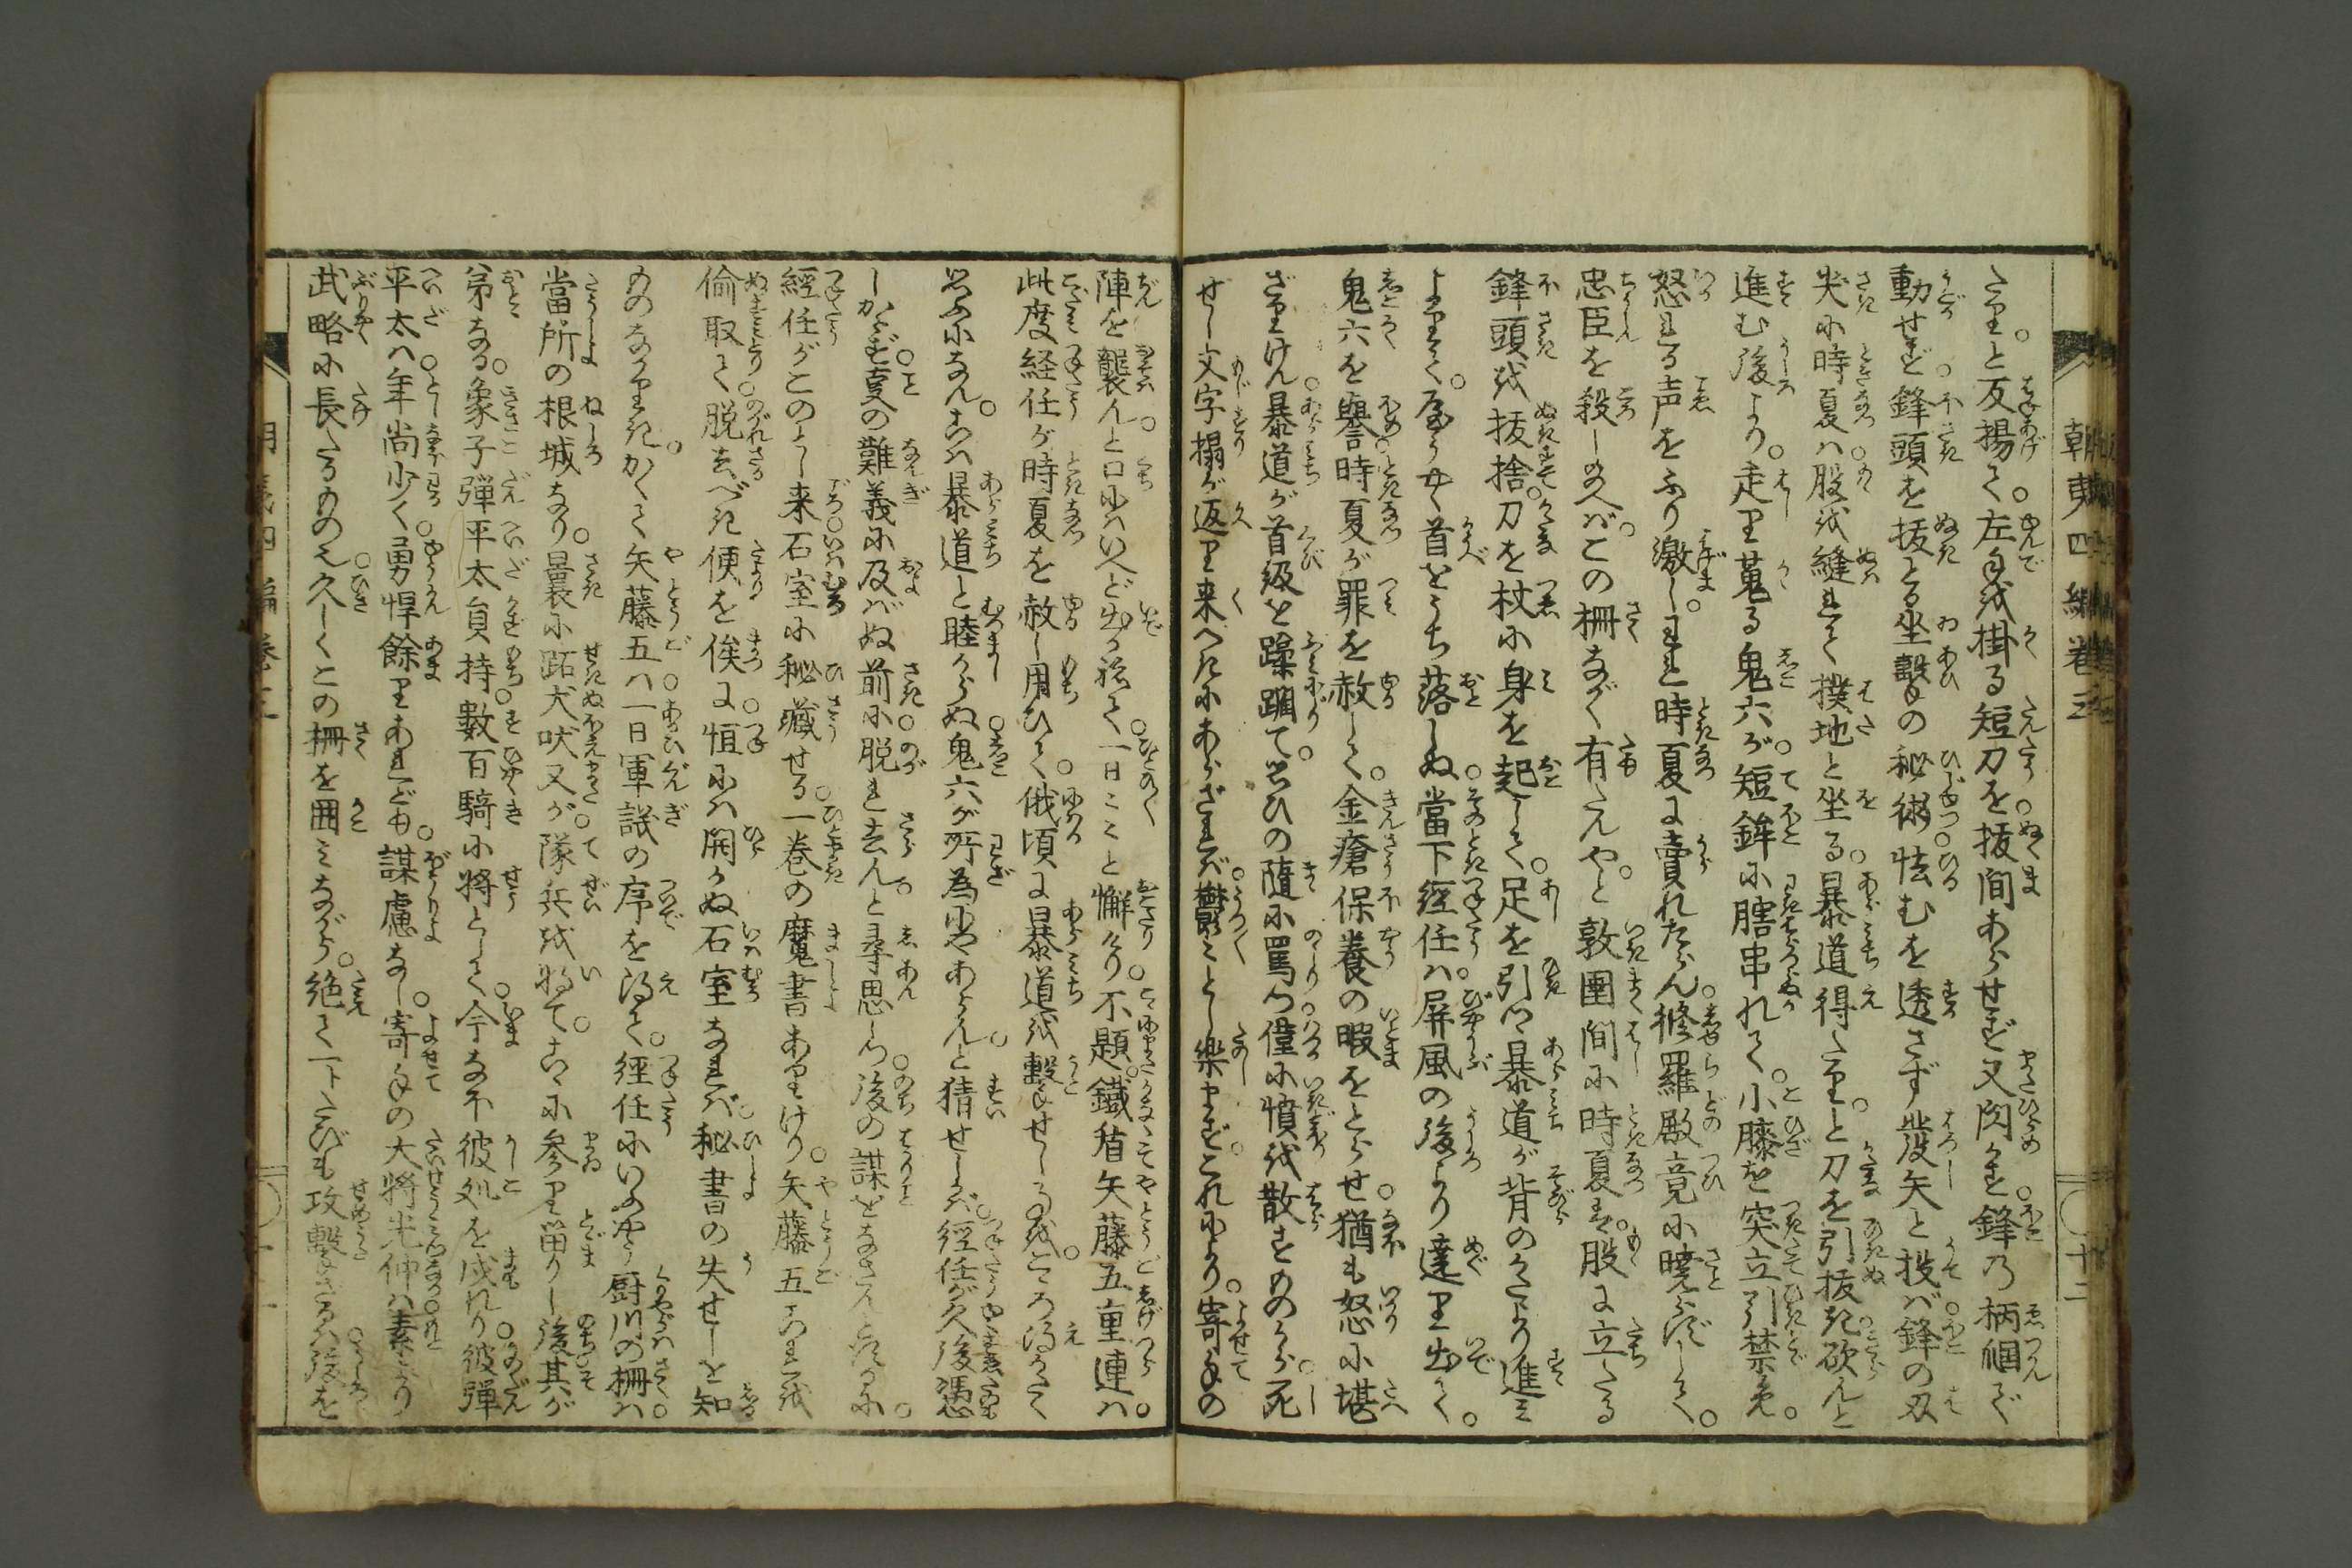 たり。と反揚て。左手を掛る短刀を抜間あらせず又閃かす鋒の柄個で
動せず鋒頭を抜とる坐撃の秘術怯むを透さず發矢と投ば鋒の刃
尖に時夏は股を縫れて撲地と坐る。暴道得たりと刀を引抜き砍んと
進む後より。走り蒐る鬼六が。短鉾に膳串れて。小膝を突立引禁免。
怒れる声をふり激し。われと時夏に賣れたらん修羅殿竟に曉らずして。
忠臣を殺しめへば。この柵ながく有たんや。と敦圉間に時夏は。股に立たる
鋒頭を抜捨。刀を杖に身を起して。足を引つ暴道が背のかたより進み
よりて。屋らやく首をうち落しぬ。當下經任は屏風の後より達り出て。
鬼六を譽時夏が罪を赦して。金瘡保養の暇をとらせ。猶も怒に堪
ざりけん暴道が首級を蹂躙て。思ひの隨に罵つ僅に憤を散すものから。死
せし文字摺が返り来べきにあらざれば。鬱々として樂まず。これにより。寄手の
陣を襲んと口にはいへど出かねて。一日ことに懈けり。不題鐵盾矢藤五重連は。
此度経任が時夏を赦し用ひて。俄頃に暴道を撃せしるを。こゝろ得がたく
思ふになん。こは暴道と睦からぬ鬼六が所為にやあらんと猜せしかば。經任が久後憑
しからず。夏の難義に及ばぬ前に脱れ去ん。と尋思しつ。後の謀をなさんと欲るに。
經任がこのとし来石室に秘藏せる。一巻の魔書ありけり。矢藤五これを
偷取て脱去べき便を俟に。恒には開かぬ石室なれば。秘書の失せしを知
ものなかりき。かくて矢藤五は一日軍議の序を得て。經任にいふやう厨川の柵は。
當所の根城なり。曩に跖犬吠又が。隊兵を将て。こゝに参り畄りし後其が
弟なる。象子弾平太負持數百騎に将として。今なほ彼処を戍れり。彼弾
平太は年尚少く。勇悍餘りあれども。謀慮なし。寄手の大將光仲は素より
武略に長たるものゝ久しくこの柵を囲みながら。絶て一トたびも攻撃ざるは後を
朝夷四編巻三
十二